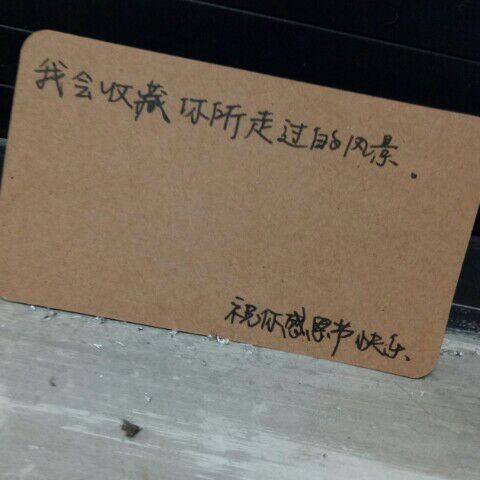 我会收藏你所走过的风景.
祝你感恩节快乐.